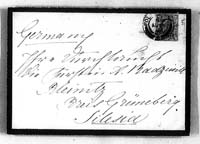 Germany
Ihre Durchlaucht
Die Fürstin A. Radziwill
Kleinitz
Kreis Grüneberg
Silesia